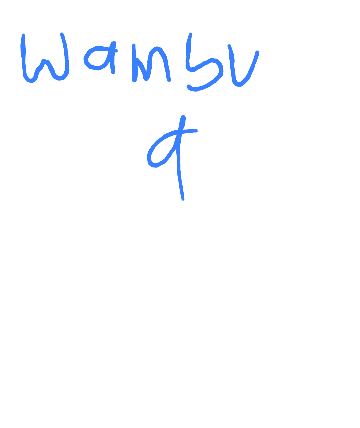 Wambu
a